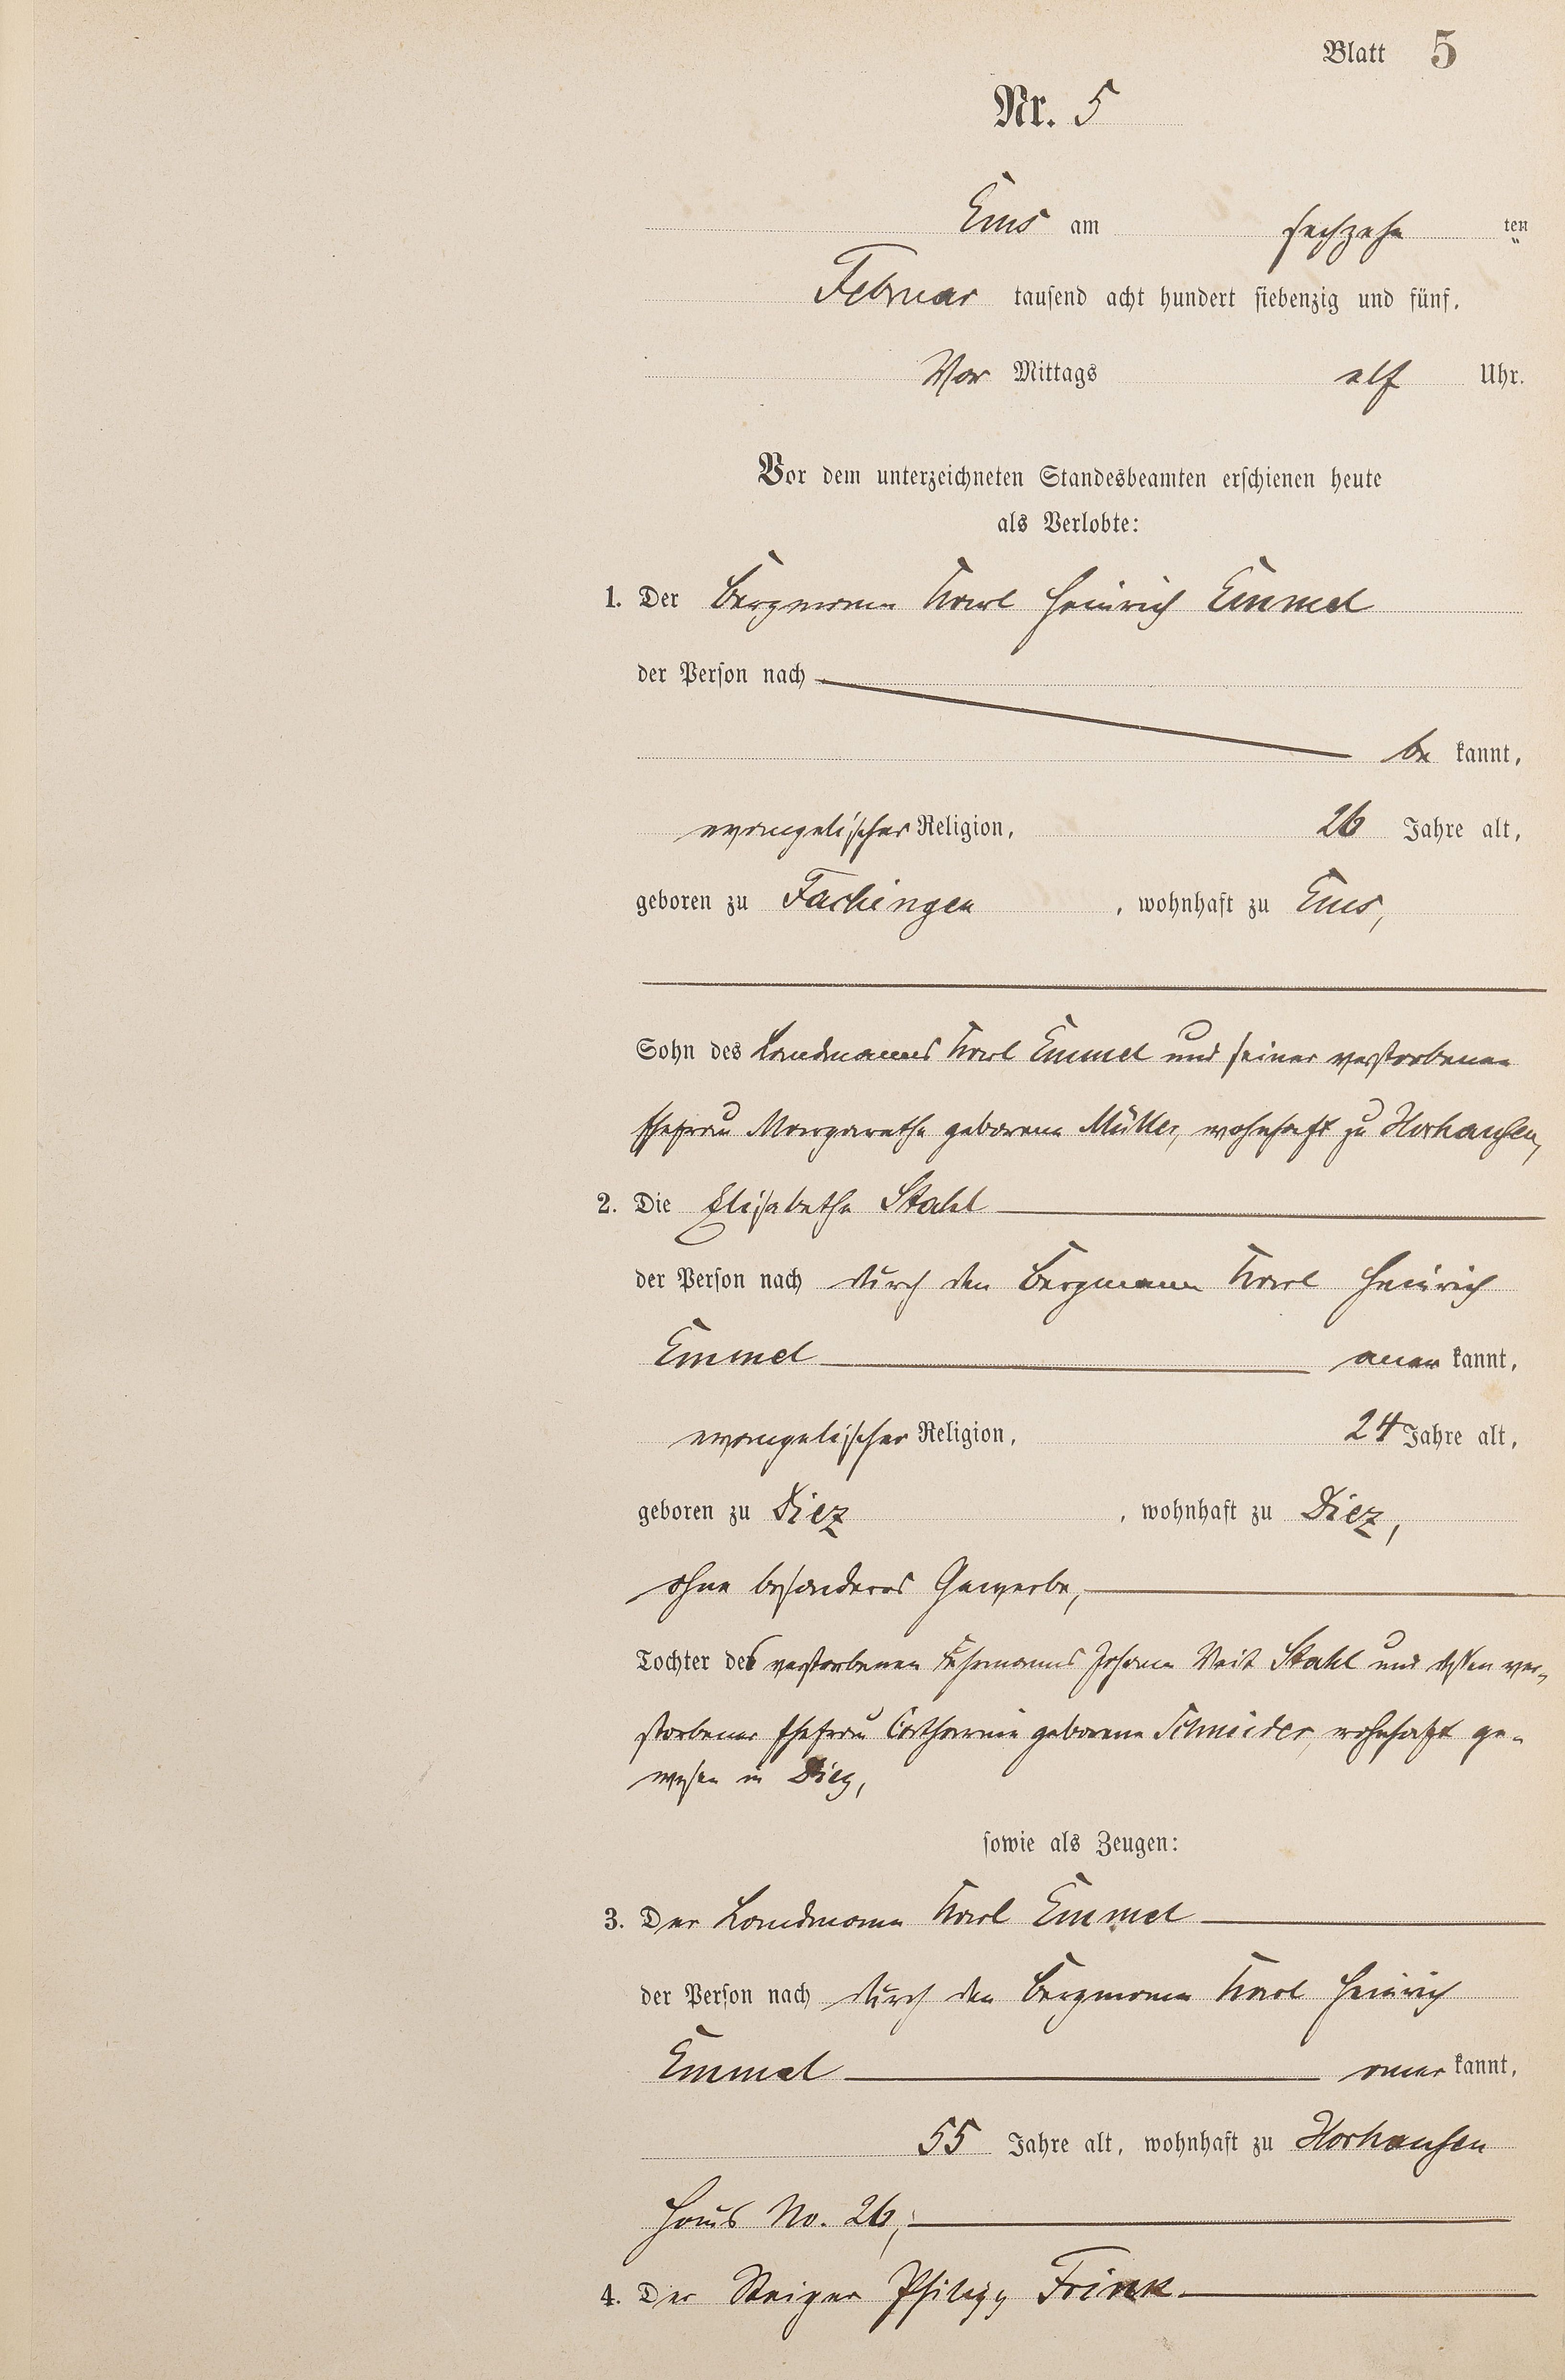 Blatt 5
Nr. 5
Ems am sechzehn ten
Februar tausend acht hundert siebenzig und fünf,
Vor Mittags elf Uhr.
Vor dem unterzeichneten Standesbeamten erschienen heute
als Verlobte:
1. Der Bergmann Karl Heinrich Emmel
der Person nach
be kannt,
evangelischer Religion, 26 Jahre alt,
geboren zu Fachingen, wohnhaft zu Ems,
Sohn des Landmanns Karl Emmel und seiner verstorbenen
Ehefrau Margarethe geborene Müller, wohnhaft zu Horhausen,
2. Die Elisabethe Stahl
der Person nach durch den Bergmann Karl Heinrich
Emmel aner kannt,
evangelischer Religion, 24 Jahre alt,
geboren zu Diez, wohnhaft zu Diez,
ohne besonderes Gewerbe,
Tochter des verstorbenen Fuhrmanns Johann Veit Stahl und dessen ver-
storbener Ehefrau Catharine geborene Schneider, wohnhaft ge-
wesen in Diez,
sowie als Zeugen:
3. Der Landmann Karl Emmel
der Person nach durch den Bergmann Karl Heinrich
Emmel aner kannt,
55 Jahre alt, wohnhaft zu Horhausen
Haus No. 26,
4. Der Steiger Philipp Frink